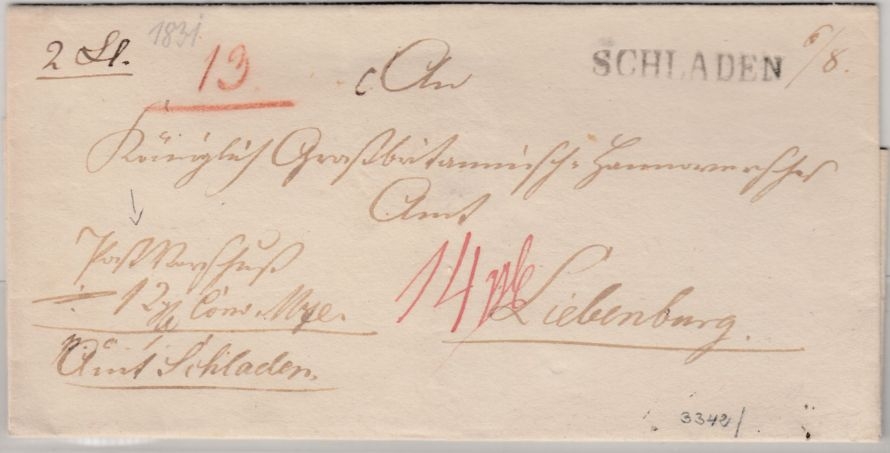 2 Ll. 1831. 13 An SCHLADEN 6/8.
Königlich Großbritannisch-Hannoversches
Amt
Post Vorschuß
12 Conv. Mze. 14 Liebenburg.
Amt Schladen.
3342/